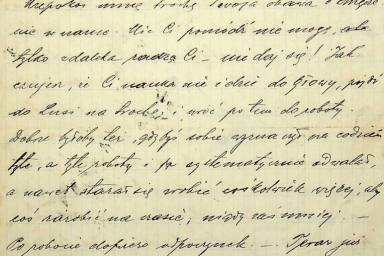 Niepokoi mnie trochę Twoja obawa o
nie w nauce. Nic Ci pomódz nie mogę, ale
tylko zdaleka radzę Ci – nie daj się! Jak
czujesz, że Ci nauka nie idzie do głowy, pójdź
do Lusi na trochę i wróć potem do roboty.
Dobrze byłoby też, gdybyś sobie wyznaczył na codzień
tyle, a tyle roboty i to systematycznie odwalał,
a nawet starał się zrobić cośkolwiek więcej, aby
coś zarobić na czasie, nigdy zaś mniej. –
Po robocie dopiero odpoczynek. – Teraz już